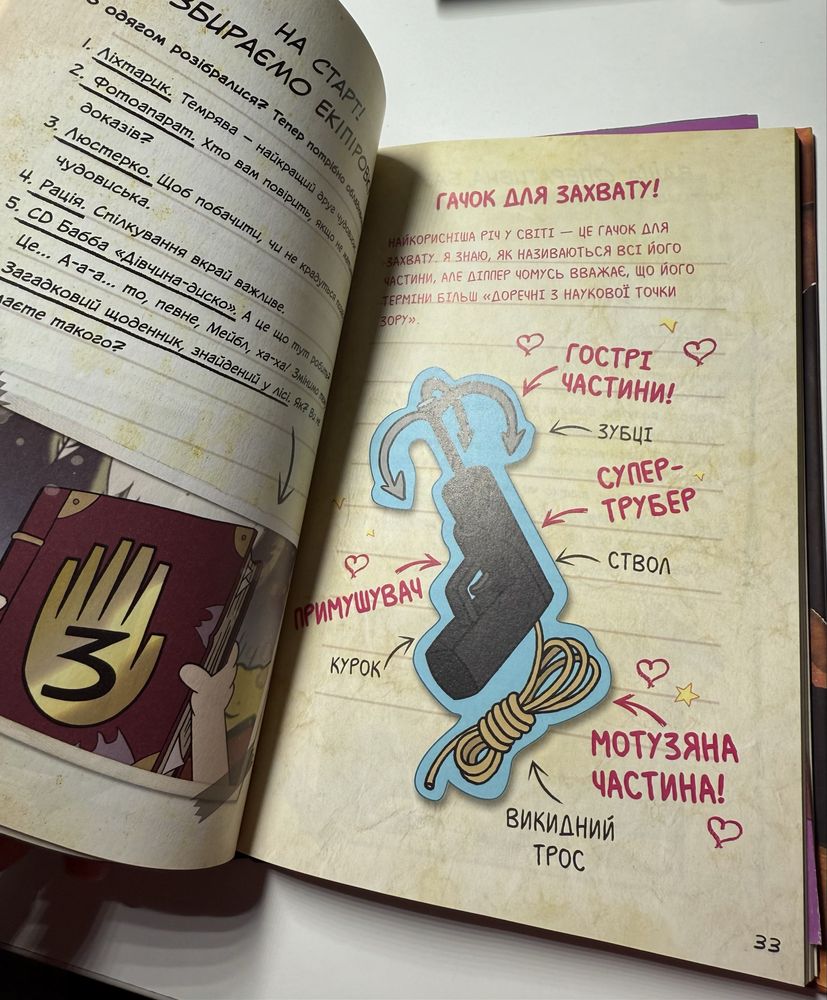 НА СТАРТ!
ЗБИРАЄМО ЕКІПІРОВК
З одягом розібралися? Тепер потрібно
1. Ліхтарик. Темрява — найкращий друг
2. Фотоапарат. Хто вам повірить, якщо не
доказів?
3. Люстерко. Щоб побачити, чи не крадуться
чудовиська.
4. Рація. Спілкування вкрай важливе.
5. CD Бабба «Дівчина-диско». А це що тут робить?
Це... А-а-а... то, певне, Мейбл, ха-ха! Змінимо
Загадковий щоденник, знайдений у лісі. Як? Ви не
маєте такого?
3
ГАЧОК ДЛЯ ЗАХВАТУ!
НАЙКОРИСНІША РІЧ У СВІТІ — ЦЕ ГАЧОК ДЛЯ
ЗАХВАТУ. Я ЗНАЮ, ЯК НАЗИВАЮТЬСЯ ВСІ ЙОГО
ЧАСТИНИ, АЛЕ ДІППЕР ЧОМУСЬ ВВАЖАЄ, ЩО ЙОГО
ТЕРМІНИ БІЛЬШ «ДОРЕЧНІ З НАУКОВОЇ ТОЧКИ
ЗОРУ».
ГОСТРІ
ЧАСТИНИ!
ЗУБЦІ
СУПЕР-
ТРУБЕР
СТВОЛ
ПРИМУШУВАЧ
КУРОК
МОТУЗЯНА
ЧАСТИНА!
ВИКИДНИЙ
ТРОС
33